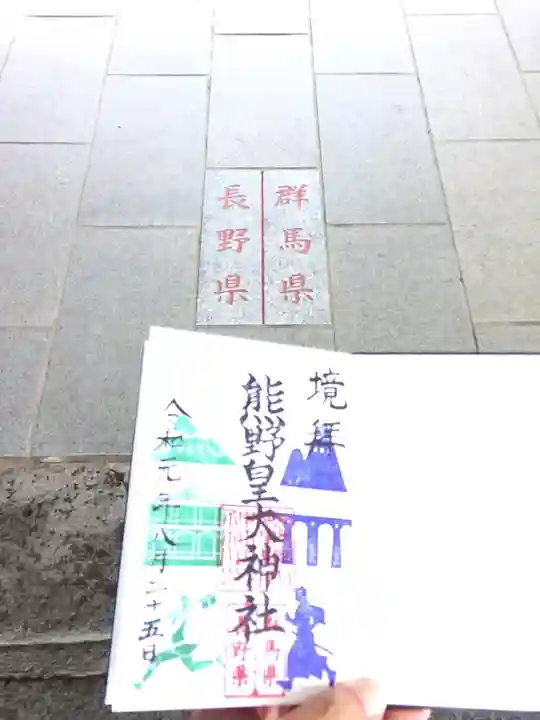 群馬県
長野県
境拝
熊野皇大神社
令和元年八月二十五日
馬県
野県